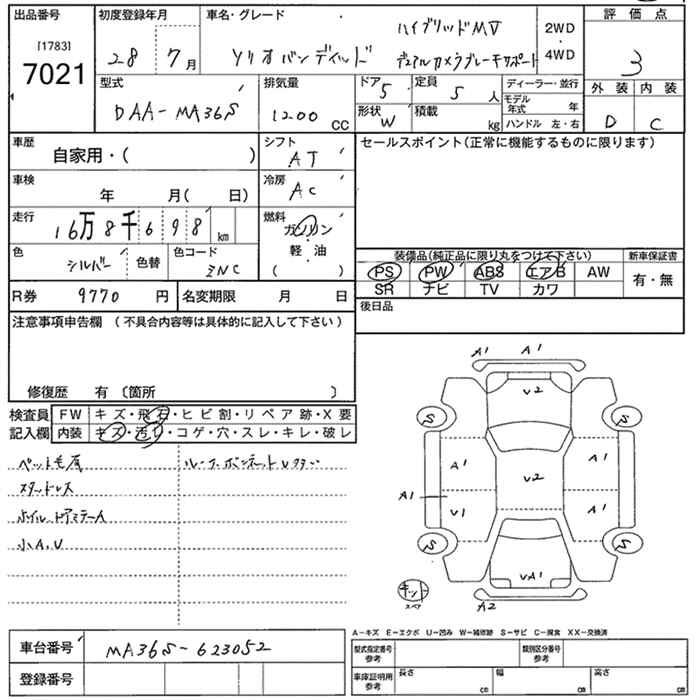 出品番号
[1783]
7021
初度登録年月
28 7月
車名・グレード
ソリオバンディット
ハイブリッドMV
デュアルカメラブレーキサポート
2WD
・
4WD
評価点
3
外装 内装
D C
型式
DAA-MA36S
排気量
1200 CC
ドア 5
形状 W
定員 5 人
積載 kg
ディーラー・並行
モデル年式 年
ハンドル 左・右
車歴
自家用・( )
シフト
AT
車検
年 月( 日)
冷房
AC
走行
16万8千698 km
燃料
ガソリン
軽・油
( )
色
シルバー
色替
色コード
ZNC
R券 9770 円
名変期限 月 日
セールスポイント(正常に機能するものに限ります)
装備品(純正品に限り丸をつけて下さい)
PS PW ABS エアB AW
SR ナビ TV カワ
新車保証書
有・無
後日品
注意事項申告欄(不具合内容等は具体的に記入して下さい)
修復歴 有〔箇所 〕
検査員
記入欄
FW キズ・飛石・ヒビ割・リペア跡・X要
内装 キズ・汚レ・コゲ・穴・スレ・キレ・破レ
ペット毛有
スタッドレス
ホイル、ドアミラーA
小A.U
A1 A1
V2
S S
A1 A1
V2
A1 V1 A1
S S
VA1
キット
スペア
A2
A−キズ E−エクボ U−凹み W−補修跡 S−サビ C−腐食 XX−交換済
車台番号 MA36S-623052
登録番号
型式指定番号
参考
類別区分番号
参考
車庫証明用
参考
長さ cm
幅 cm
高さ cm